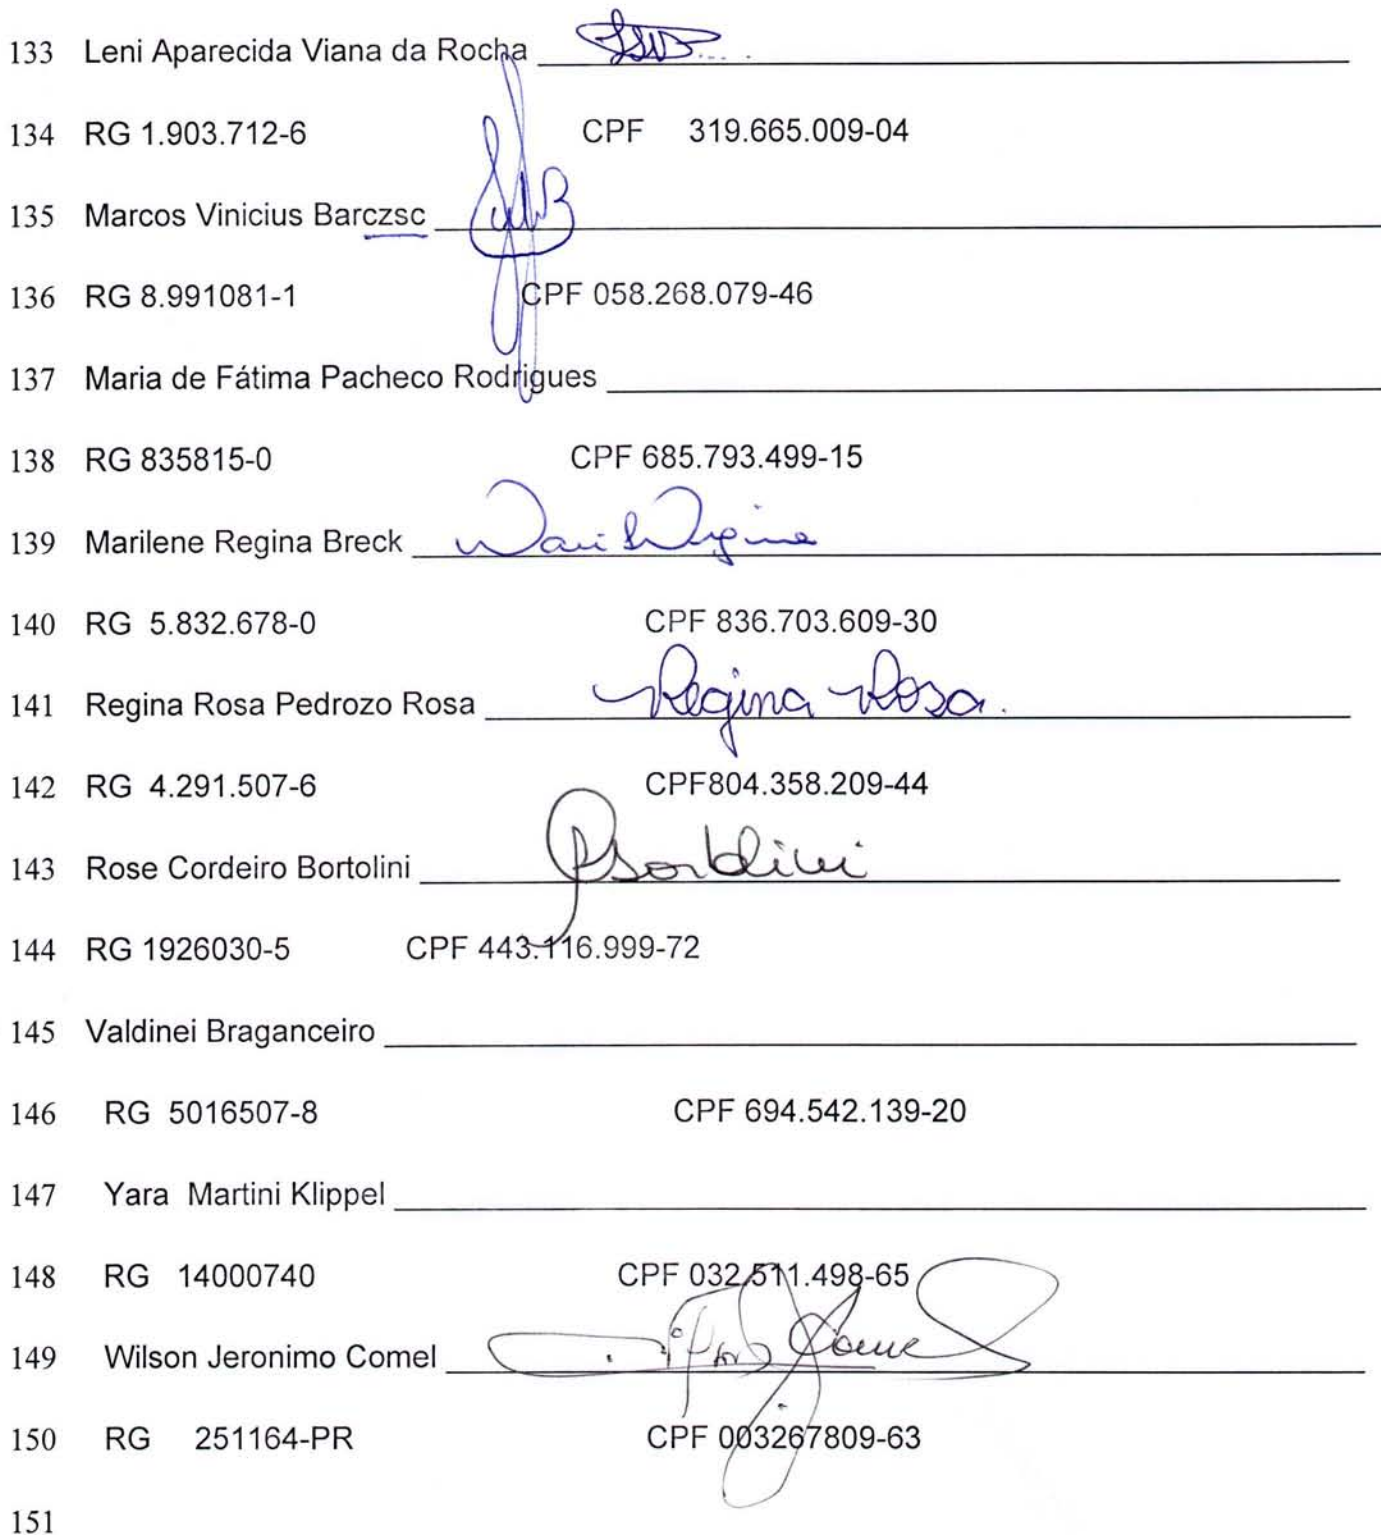 133 Leni Aparecida Viana da Rocha
134 RG 1.903.712-6 CPF 319.665.009-04
135 Marcos Vinicius Barczsc
136 RG 8.991081-1 CPF 058.268.079-46
137 Maria de Fátima Pacheco Rodrigues
138 RG 835815-0 CPF 685.793.499-15
139 Marilene Regina Breck
140 RG 5.832.678-0 CPF 836.703.609-30
141 Regina Rosa Pedrozo Rosa Regina Rosa.
142 RG 4.291.507-6 CPF804.358.209-44
143 Rose Cordeiro Bortolini
144 RG 1926030-5 CPF 443.116.999-72
145 Valdinei Braganceiro
146 RG 5016507-8 CPF 694.542.139-20
147 Yara Martini Klippel
148 RG 14000740 CPF 032.511.498-65
149 Wilson Jeronimo Comel
150 RG 251164-PR CPF 003267809-63
151